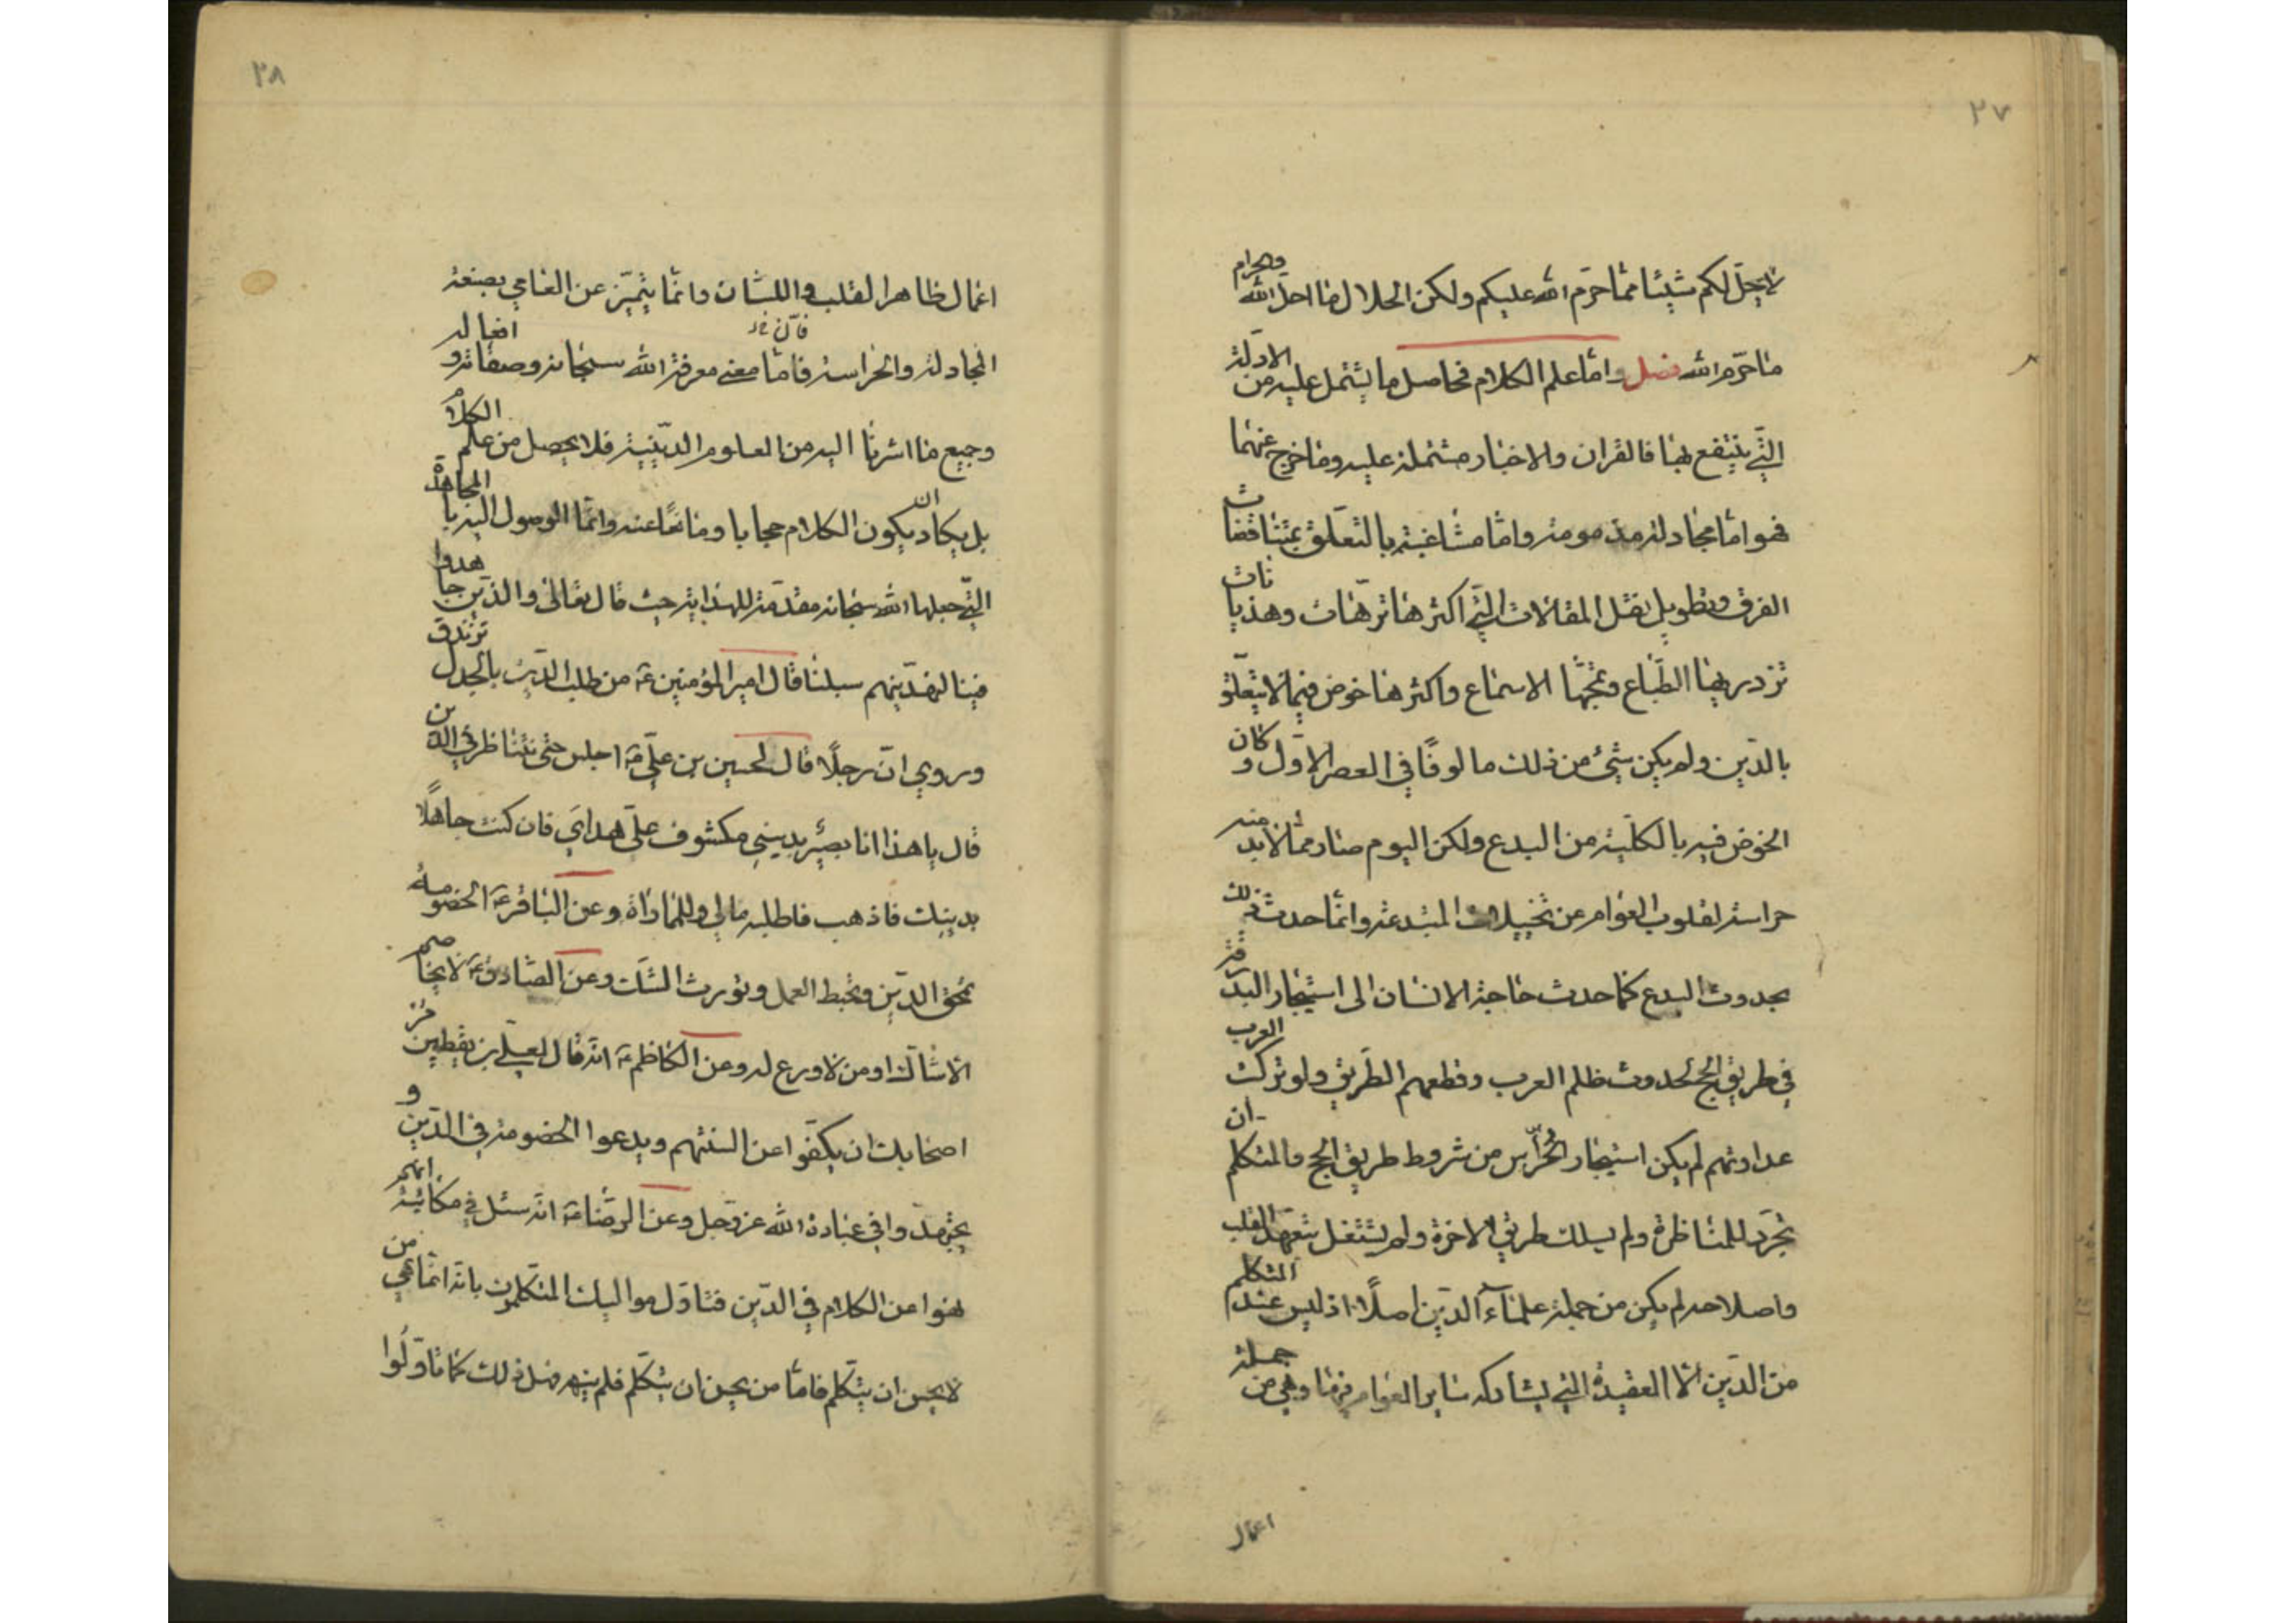 ٢٧
لا يحلّ لكم شيئا ممّا حرّم الله عليكم ولكن الحلال ما احلّ الله والحرام
ما حرّم الله فصل وامّا علم الكلام فحاصل ما يشتمل عليه من الادلّة
الّتي ينتفع بها فالقران والاخبار مشتملة عليه وما خرج عنهما
فهو امّا مجادلة مذمومة وامّا مشاغبة بالتعلّق بمتناقضات
الفرق وتطويل بنقل المقالات الّتي اكثرها ترهّات وهذيانات
تزدريها الطّباع وتمجّها الاسماع واكثرها خوض فيما لا يتعلّق
بالدّين ولم يكن شيئ من ذلك مالوفًا في العصر الاوّل وكان
الخوض فيه بالكلّية من البدع ولكن اليوم صار ممّا لابد منه
حراسة لقلوب العوام عن تخييلات المبتدعة وانّما حدث ذلك
بحدوث البدع كما حدث حاجة الانسان الى استيجار البدرقة
في طريق الحج لحدوث ظلم العرب وقطعهم الطّريق ولو تركت العرب
عداوتهم لم يكن استيجار الحُرّاس من شروط طريق الحج فالمتكلم ان
تجرّد للمناظرة ولم يسلك طريق الاخرة ولم يشتغل بتعهّد القلب
واصلاحه لم يكن من جملة علماء الدّين اصلًا اذ ليس عند المتكلم
من الدّين الّا العقيدة الّتي يشاركه ساير العوام فيها وهي من جملة
اعمال
٢٨
اعمال ظاهر القلب واللسان وانّما يتميّز عن العامي بصنعة
المجادلة والحراسة فامّا معنى معرفة الله سبحانه وصفاته وافعاله
فانّ خ‌ل
وجميع ما اشرنا اليه من العلوم الدّينية فلا يحصل من علم الكلام
بل يكاد ان يكون الكلام حجابا ومانعًا عنه وانّما الوصول اليه بالمجاهدة
الّتي جعلها الله سبحانه مقدّمة للهداية حيث قال تعالى والذين جاهدوا
فينا لنهدينّهم سبلنا قال امير المؤمنين ع من طلب الدّين بالجدل تزندق
وروي انّ رجلًا قال لحسين بن عليّ ع اجلس حتى نتناظر في الدّين
قال يا هذا انا بصير بديني مكشوف عليّ هداي فان كنت جاهلًا
بدينك فاذهب فاطلبه مالي وللمماراة وعن الباقر ع الخصومة
تمحق الدّين وتحبط العمل وتورث الشّك وعن الصّادق ع لا يخاصم
الّا شاكّ او من لا ورع له وعن الكاظم ع انّه قال لعليّ بن يقطين مُر
اصحابك ان يكفّوا عن السنتهم ويدعوا الخصومة في الدّين و
يجتهدوا في عبادة الله عز وجل وعن الرضا ع انّه سئل في مكاتبة انهم
نهوا عن الكلام في الدّين فتاوّل مواليك المتكلّمون بانّه انّما نهي من
لا يحسن ان يتكلّم فامّا من يحسن ان يتكلّم فلم ينهه فهل ذلك كما تاوّلوا